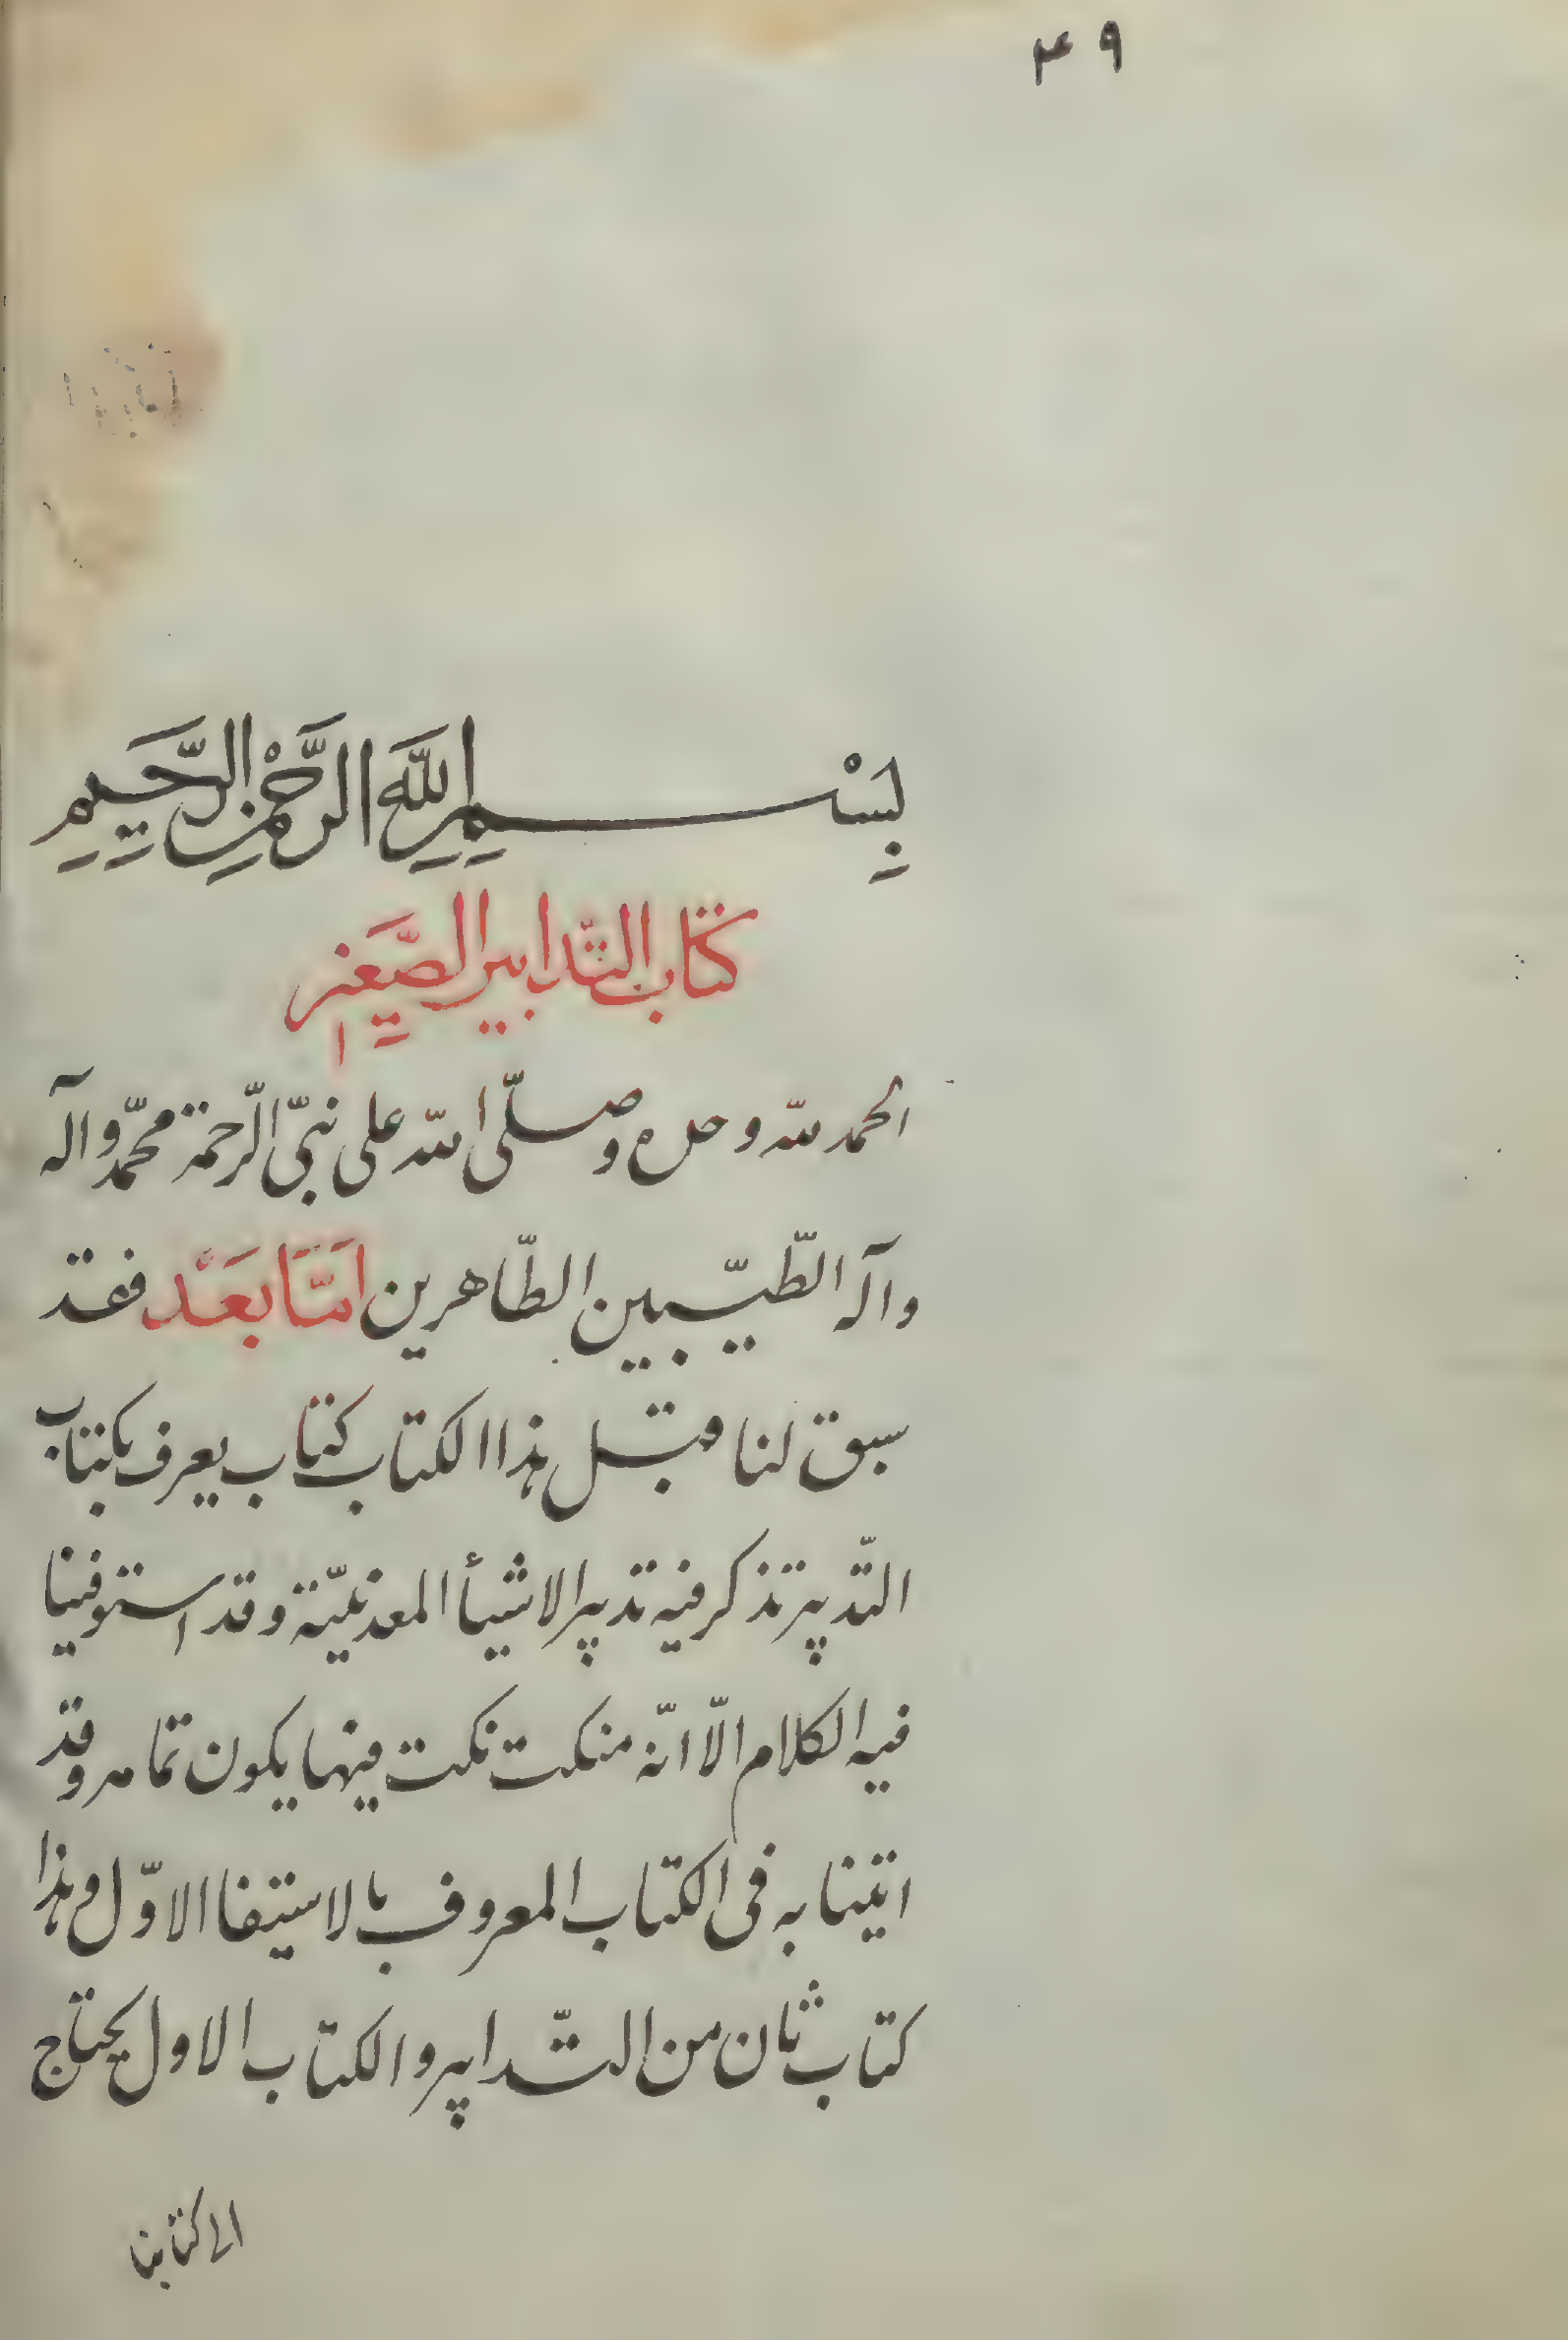 ٤٩
بِسْمِ اللَّهِ الرَّحْمٰنِ الرَّحِيمِ
كتاب التّدابير الصَّغير
الحمد لله وحده وصلّى الله على نبىّ الرّحمة محمّد وآله
وآله الطّيّبين الطّاهرين امّا بعد فقد
سبق لنا قبل هذا الكتاب كتاب يعرف بكتاب
التّدبير تذكر فيه تدبير الاشيأ المعدنيّة وقد استوفينا
فيه الكلام الّا انّه نكت فيها يكون تمامه وقد
اتينا به فى الكتاب المعروف بالاستيفا الاوّل وهذا
كتاب ثان من التّدابير والكتاب الاول يحتاج
الى كتابنا